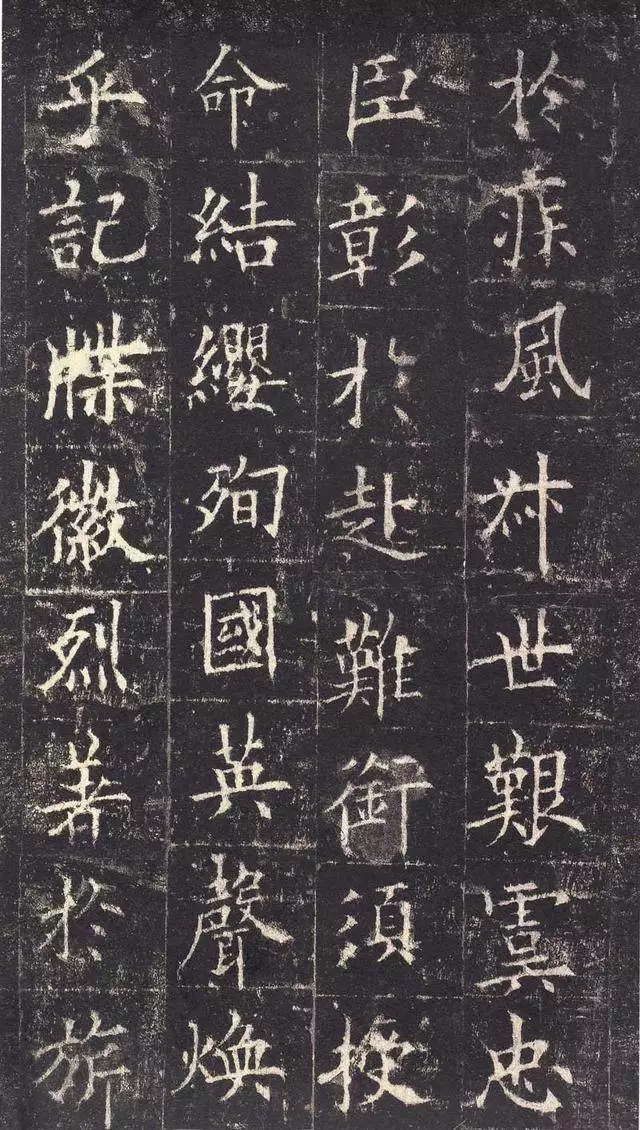 於疾風卋世艱虞忠
臣彰於赴難銜須授
命結纓殉國英聲煥
乎記牒徽烈著於旂